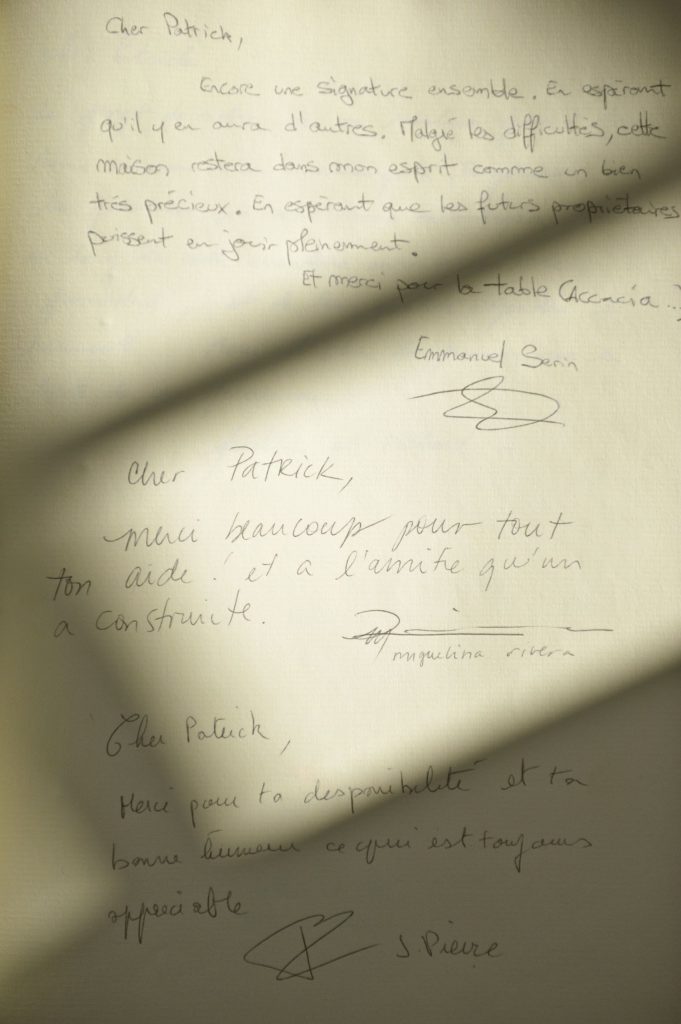 Cher Patrick,
Encore une signature ensemble. En espérant
qu'il y en aura d'autres. Malgré les difficultés, cette
maison restera dans mon esprit comme un bien
trés précieux. En espérant que les futurs propriétaires
puissent en jouir pleinement.
Et merci pour la table (Accacia...)
Emmanuel Serin
Cher Patrick,
merci beaucoup pour tout
ton aide! et a l'amitie qu'un
a construite.
miquelina rivera
Cher Patrick,
Merci pour ta desponibilité et ta
bonne humeur ce qui est toujours
appréciable
J. Pierre